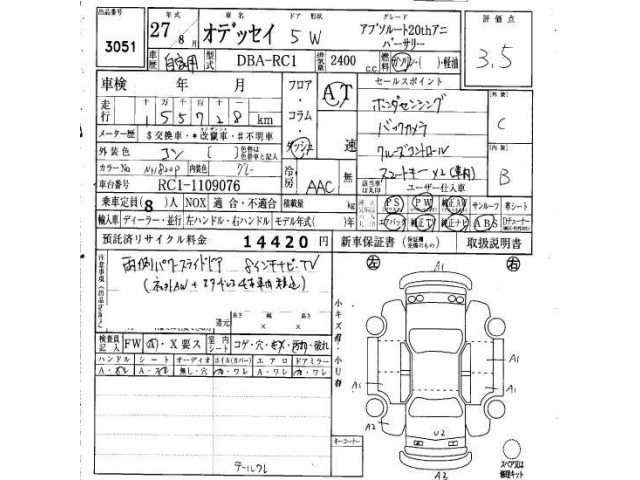 出品番号
3051
年式
27年
8月
車名
オデッセイ
ドア 形状
5 W
グレード
アブソルート20thアニバーサリー
評価点
3.5
車歴
自家用
型式
DBA-RC1
排気量
2400 C.C.
燃料
ガソリン・( )・軽油
車検 年 月
フロア・コラム・ダッシュ
AT
速
セールスポイント
走行
十万 万 千 百 十 一
155728 km
ホンダセンシング
バックカメラ
クルーズコントロール
スマートキー×2(車内)
外装
C
内装
B
メーター歴 $交換車・*改竄車・#不明車
外装色
コン
色替は色替車と記入
カラーNo
内装色
グレー
冷房
AAC
無
車台番号
RC1-1109076
ユーザー仕入車
乗車定員( 8 )人
NOX 適合・不適合
積載量 kg
PS
PW
純正AW
サンルーフ
革シート
輸入車 ディーラー・並行
左ハンドル・右ハンドル
モデル年式( )年
エアバック
純正T
純正ナビ
ABS
預託済リサイクル料金 14420 円
新車保証書
取扱説明書
注意事項(出品店記入)
両側パワースライドドア 8インチナビ・TV
還元
長さ 幅 高さ
× ×
左
右
小キズ有
小U有
検査員記入
FW
A・X要ス
室内シート
コゲ・穴・キズ・汚れ・破れ
ハンドル
シート
オーディオ
ホイル(カバー)
エアロ
ドアミラー
A・スレ
A・スレ
無し・穴
カ・ワレ
カ・ワレ
カ・ワレ
テールワレ
キーコーナー
A1
A1
A1
A1
A1
A2
U2
A2
スペア又は修理キット